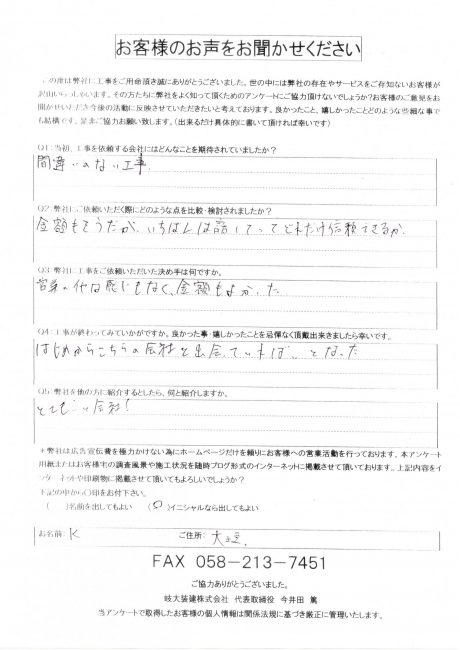 お客様のお声をお聞かせください
この度は弊社に工事をご用命頂き誠にありがとうございました。世の中には弊社の存在やサービスをご存知ないお客様が
沢山いらっしゃいます。その方たちに弊社をよく知って頂くためのアンケートにご協力頂けないでしょうか?お客様のご意見をお
聞かせいただき今後の活動に反映させていただきたいと考えております。良かったこと、嬉しかったことどのような些細な事で
も結構です。是非ご協力お願い致します。(出来るだけ具体的に書いて頂ければ幸いです)
Q1:当初、工事を依頼する会社にはどんなことを期待されていましたか?
間違いのない工事
Q2:弊社にご依頼いただく際にどのような点を比較・検討されましたか?
金額もそうだが、いちばんは話していてどれだけ信頼できるか
Q3:弊社に工事をご依頼いただいた決め手は何ですか。
営業の代は感じもなく、金額もよかった
Q4:工事が終わってみていかがですか。良かった事・嬉しかったことを忌憚なく頂戴出来きましたら幸いです。
はじめからこちらの会社と出会っていれば…となった
Q5:弊社を他の方に紹介するとしたら、何と紹介しますか。
とてもいい会社!
*弊社は広告宣伝費を極力かけない為にホームページだけを頼りにお客様への営業活動を行っております。本アンケート
用紙またはお客様宅の調査風景や施工状況を随時ブログ形式のインターネットに掲載させて頂いております。上記内容をイ
ンターネットや印刷物に掲載させて頂いてもよろしいでしょうか?
下記の中から〇印をお付下さい。
( )名前を出してもよい (〇)イニシャルなら出してもよい
お名前: K ご住所: 大垣
FAX 058-213-7451
ご協力ありがとうございました。
岐大装建株式会社 代表取締役 今井田 篤
当アンケートで取得したお客様の個人情報は関係法規に基づき厳正に管理いたします。